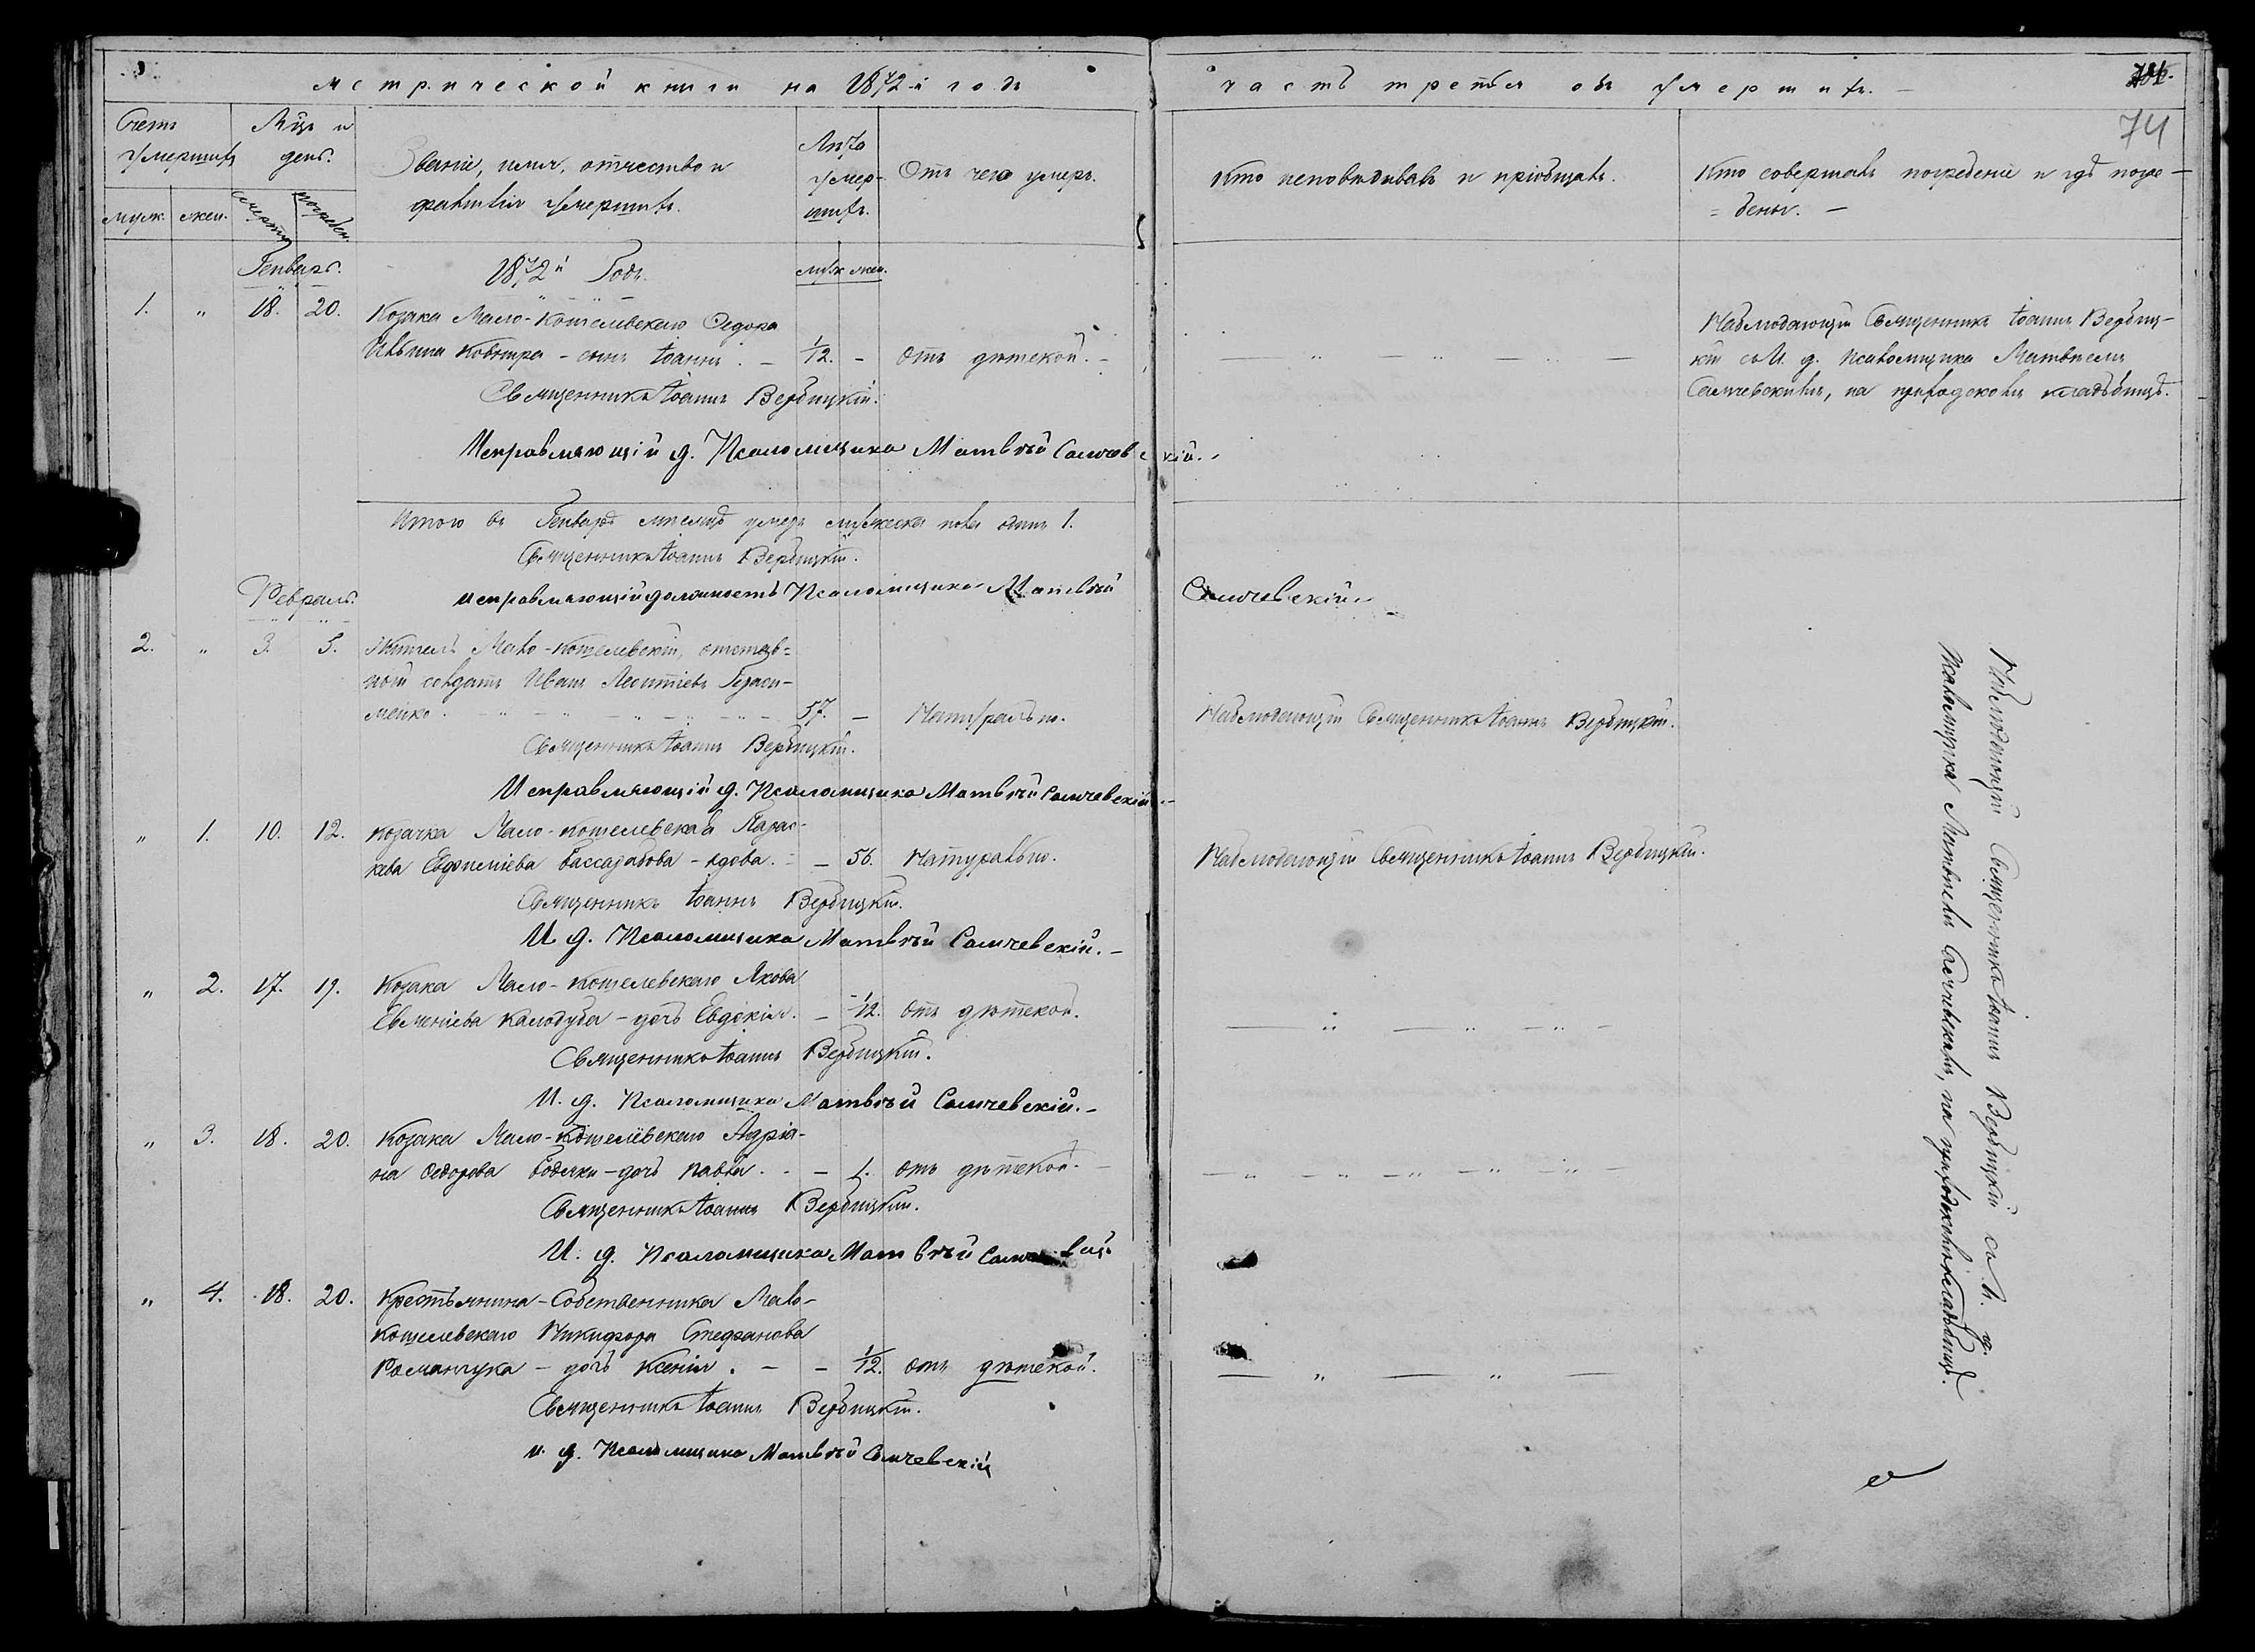 метрической книги на 1872-й годъ
часть третья объ умершихъ.
74
Счетъ умершихъ
Мцъ и день.
Званіе, имя, отчество и фамилія умершихъ.
Лѣта умершихъ.
Отъ чего умеръ.
Кто исповѣдывалъ и пріобщалъ.
Кто совершалъ погребеніе и гдѣ погре-
=бены.
муж. жен. смерти погребен.
муж. жен.
Генварь. 1872й Годъ.
1. " 18. 20. Козака Мало-Кошелевскаго Ѳедора
сынъ Іоаннъ. 1/12. - Отъ дѣтской.
Священникъ Іоаннъ Вербицкій.
Исправляющій д. Псаломщика Матвѣй Самчевскій.
Наблюдающій Священникъ Іоаннъ Вербиц-
кій съ И. д. псаломщика Матвѣемъ
Самчевскимъ, на приходскомъ кладбищѣ.
Итого въ Генварѣ мѣсяцѣ умеръ мужеска пола одинъ 1.
Священникъ Іоаннъ Вербицкій.
исправляющій должность Псаломщика Матвѣй Самчевскій.
Февраль.
2. " 3. 5. Житель Мало-Кошелевскій, отстав=
ной солдатъ Иванъ Леонтіевъ Гераси-
менко. 57. - Натурально.
Наблюдающій Священникъ Іоаннъ Вербицкій.
Священникъ Іоаннъ Вербицкій.
Исправляющій д. Псаломщика Матвѣй Самчевскій.
" 1. 10. 12. Козачка Мало-Кошелевская Парас-
кева Евфиміева Бассарабова - вдова. - 56. Натурально.
Наблюдающій Священникъ Іоаннъ Вербицкій.
Священникъ Іоаннъ Вербицкій.
И. д. Псаломщика Матвѣй Самчевскій.
" 2. 17. 19. Козака Мало-Кошелевскаго Якова
Евменіева Калодуба - дочь Евдокія. - 1/12. Отъ дѣтской.
Священникъ Іоаннъ Вербицкій.
И. д. Псаломщика Матвѣй Самчевскій.
" 3. 18. 20. Козака Мало-Кошелевскаго Адріа-
на Ѳедорова - дочь Павла. - 1. отъ дѣтской.
Священникъ Іоаннъ Вербицкій.
И. д. Псаломщика Матвѣй
" 4. 18. 20. Крестьянина-Собственника Мало-
Кошелевскаго Никифора Стефанова
Романчука - дочь Ксенія. - 1/12. Отъ дѣтской.
Священникъ Іоаннъ Вербицкій.
и. д. Псаломщика Матвѣй Самчевскій
Наблюдающій Священникъ Іоаннъ Вербицкій съ И. д.
Псаломщика Матвѣемъ Самчевскимъ, на приходскомъ кладбищѣ.